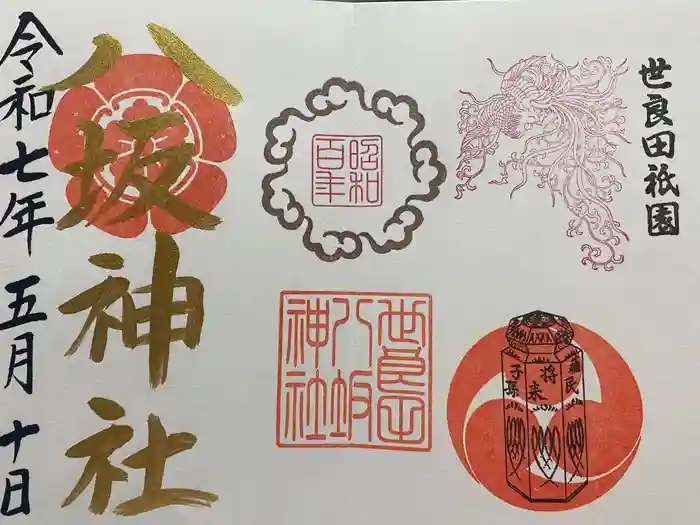 世良田祇園
昭和
百年
蘓民
将来
子孫
世良田
八坂
神社
八坂神社
令和七年五月十日